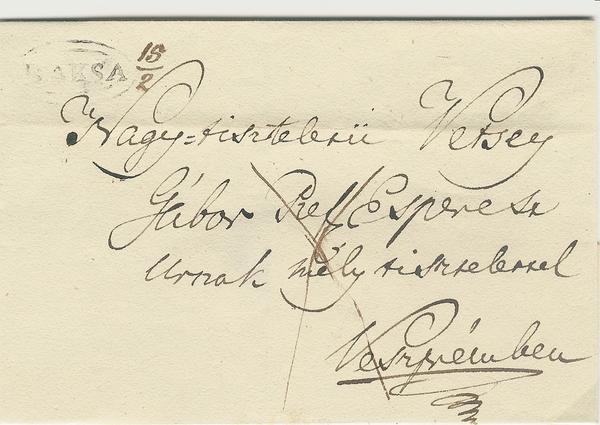 BAKSA
15/2
Nagy=tiszteletü Vetsey
Gábor Ref Esperest
Urnak mély tisztelettel
Veszprémben